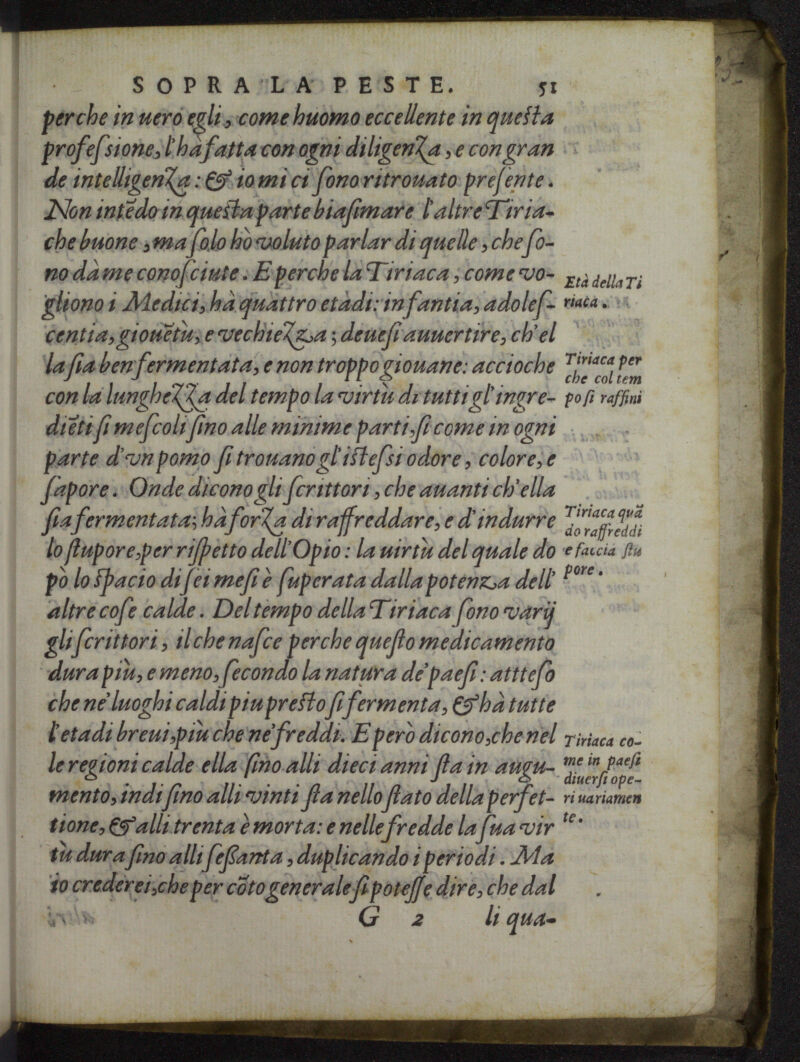 SOPRA LA PESTE. 51
perche in uero egli, come huomo eccellente in questa
professione, l'hà fatta con ogni diligenza, e con gran
de intelligenza: & io mi ci sono ritrouato presente.
Non intēdo in questa parte biasimare l'altre Tiria-
che buone, ma solo hò voluto parlar di quelle, che so-
no dà me conosciute. E perche la Tiriaca, come vo-
gliono i Medici, hà quattro etadi: infantia, adoles-
centia, giouētù, e vechiezza; deuesi auuertire, ch'el
la sia ben fermentata, e non troppo giouane: accioche
con la lunghezza del tempo la virtù di tutti gl'ingre-
diēti si mescoli sino alle minime parti, si come in ogni
parte d'vn pomo si trouano gl'istessi odore, colore, e
sapore. Onde dicono gli scrittori, che auanti ch'ella
sia fermentata; hà forza di raffreddare, e d'indurre
lo stupore, per rispetto dell'Opio: la uirtù del quale do
pò lo spacio di sei mesi è superata dalla potenza dell'
altre cose calde. Del tempo della Tiriaca sono varij
gli scrittori, il che nasce perche questo medicamento
dura più, e meno, secondo la natura de' paesi: attteso
che ne' luoghi caldi piu presto si fermenta, & hà tutte
l'etadi breui, più che ne' freddi. E però dicono, che nel
le regioni calde ella sino alli dieci anni sta in augu-
mento, indi sino alli vinti sta nello stato della perfet-
tione, & alli trenta è morta: e nelle fredde la sua vir
tù dura sino alli sessanta, duplicando i periodi. Ma
io crederei, che per cōto generale si potesse dire, che dal
G 2 li qua-
Età della Ti
riaca.
Tiriaca per
che col tem
po si raffini
Tiriaca quā
do raffreddi
e faccia stu
pore.
Tiriaca co-
me in paesi
diuersi ope-
ri uariamen
te.